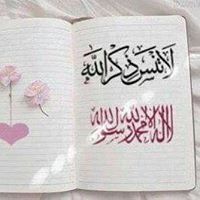 لا تنس ذكر الله
لا اله الا الله محمد رسول الله